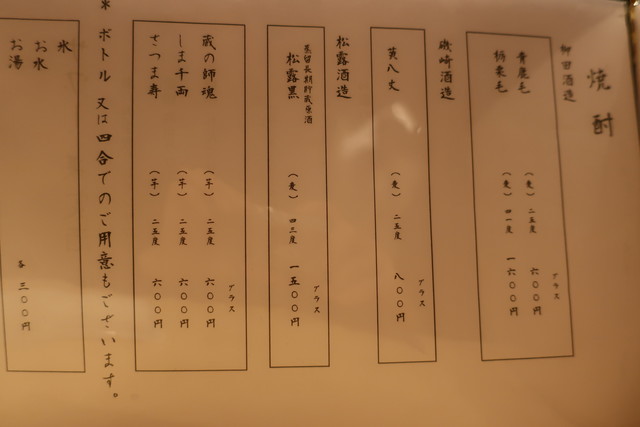 焼酎
柳田酒造
青鹿毛 (麦) 二五度 グラス 六〇〇円
栃栗毛 (麦) 四一度 一六〇〇円
磯崎酒造
黄八丈 (麦) 二五度 グラス 八〇〇円
松露酒造
蒸留長期貯蔵原酒
松露黒 (麦) 四三度 グラス 一五〇〇円
蔵の師魂 (芋) 二五度 グラス 六〇〇円
しま千両 (芋) 二五度 六〇〇円
さつま寿 (芋) 二五度 六〇〇円
* ボトル 又は四合でのご用意もございます。
氷
お水
お湯
各 三〇〇円